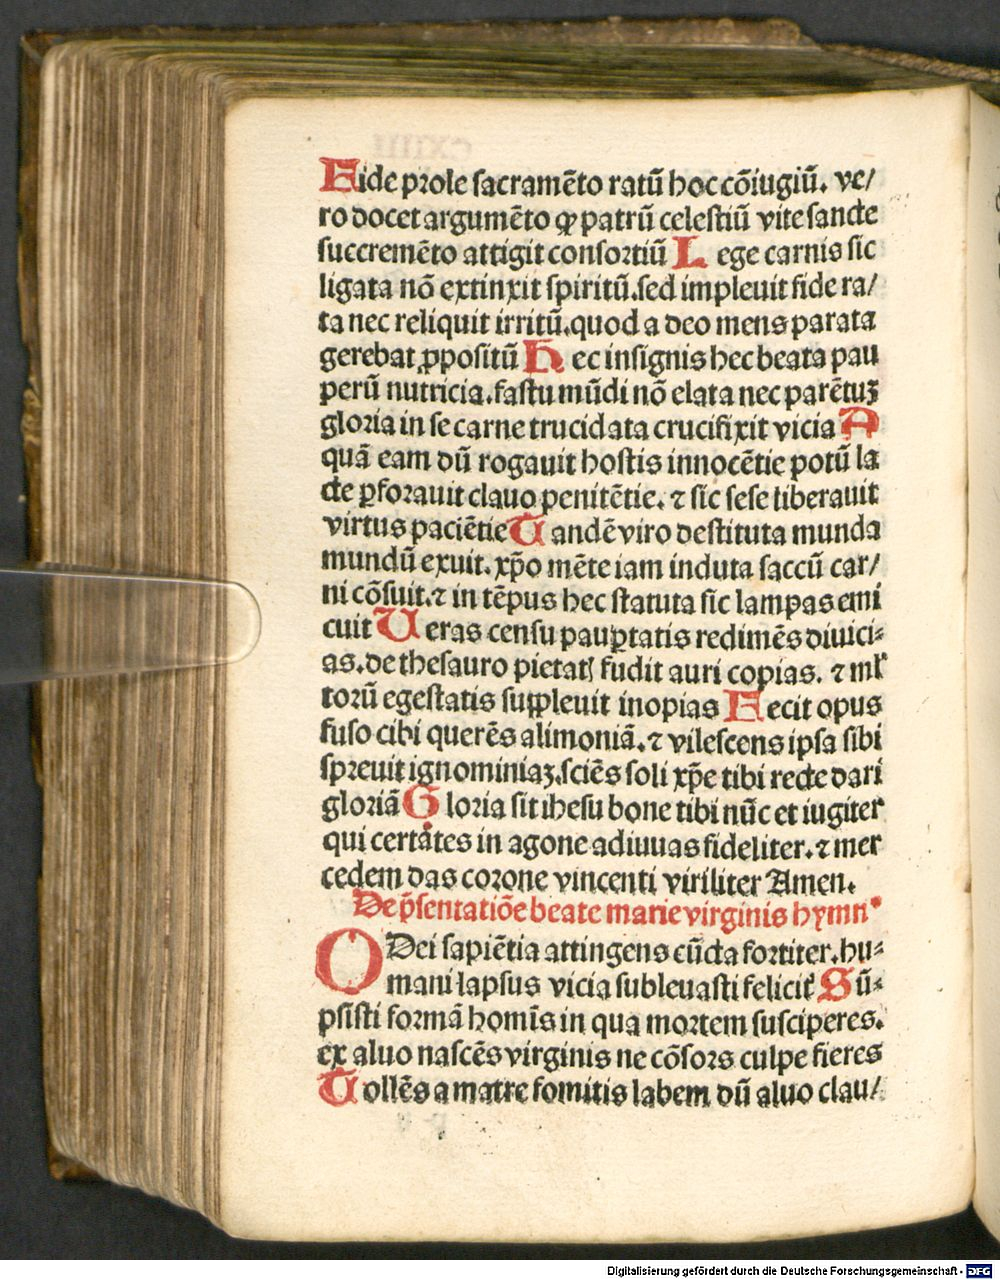 Fide prole sacramẽto ratũ hoc cõiugiũ. ve/
ro docet argumẽto ꝙ patrũ celestiũ vite sancte
succremẽto attigit consortiũ Lege carnis sic
ligata nõ extinxit spiritũ.sed impleuit fide ra/
ta nec reliquit irritũ.quod a deo mens parata
gerebat ꝓpositũ Hec insignis hec beata pau
perũ nutricia.fastu mũdi nõ elata nec parẽtuꝫ
gloria in se carne trucidata crucifixit vicia A
quã eam dũ rogauit hostis innocẽtie potũ la
cte ꝑforauit clauo penitẽtie. ⁊ sic sese liberauit
virtus paciẽtie Tandẽ viro destituta munda
mundũ exuit. xp̃o mẽte iam induta saccũ car/
ni cõsuit.⁊ in tẽpus hec statuta sic lampas emi
cuit Veras censu pauꝑtatis redimẽs diuici⸗
as.de thesauro pietatꝭ fudit auri copias. ⁊ ml̕
torũ egestatis suppleuit inopias Fecit opus
fuso cibi querẽs alimoniã.⁊ vilescens ipsa sibi
spreuit ignominiaꝫ.sciẽs soli xp̃e tibi recte dari
gloriã Gloria sit ihesu bone tibi nũc et iugiter
qui certãtes in agone adiuuas fideliter.⁊ mer
cedem das corone vincenti viriliter Amen.
De p̃sentatiõe beate marie virginis hymnꝰ
O Dei sapiẽtia attingens cũcta fortiter.hu⸗
mani lapsus vicia subleuasti felicit̕ Sũ⸗
psisti formã homĩs in qua mortem susciperes.
ex aluo nascẽs virginis ne cõsors culpe fieres
Tollẽs a matre fomitis labem dũ aluo clau/
Digitalisierung gefördert durch die Deutsche Forschungsgemeinschaft - DFG